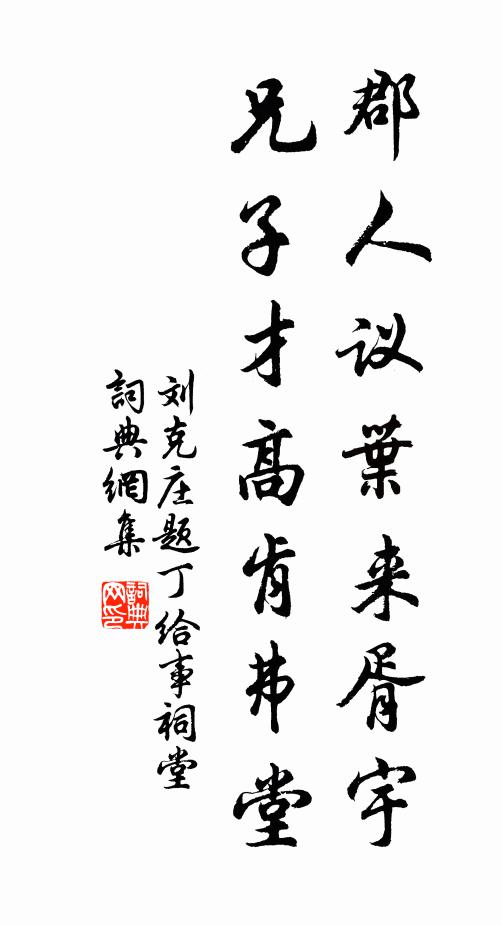 郡人议葉来胥宇
兄子才高肯弗堂
刘克庄题丁给事祠堂
詞典網集
詞典
网印